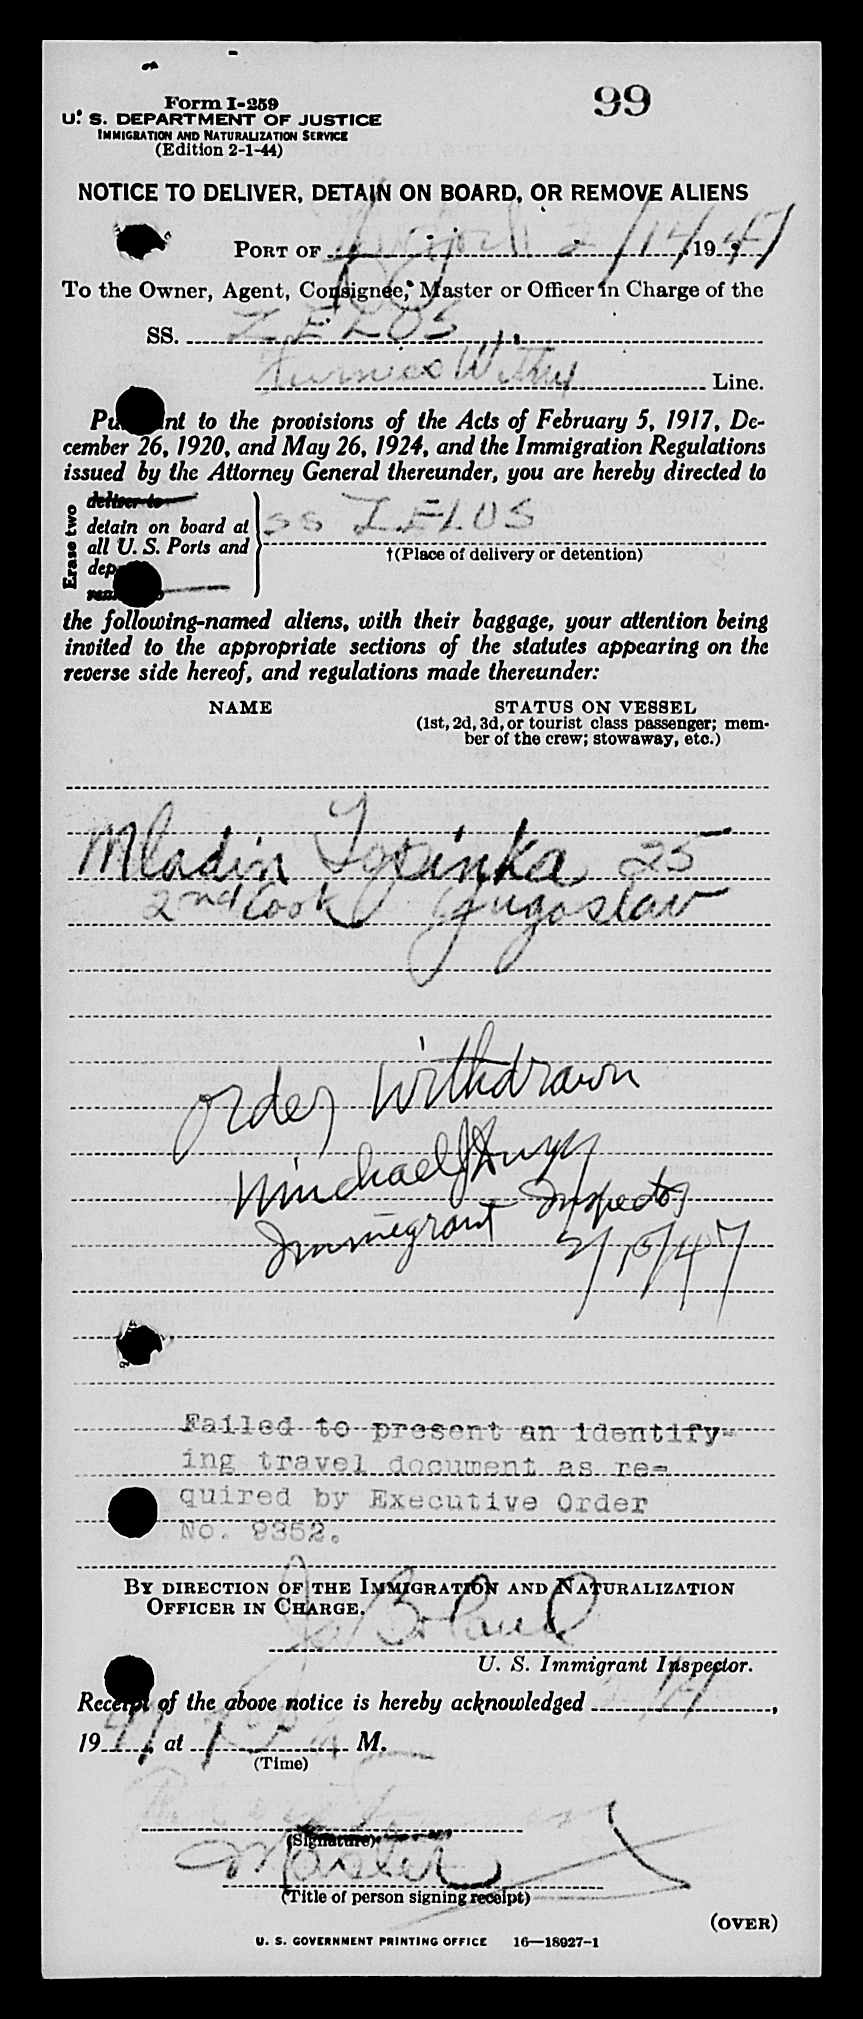 99
Form I-259
U. S. DEPARTMENT OF JUSTICE
IMMIGRATION AND NATURALIZATION SERVICE
(Edition 2-1-44)
NOTICE TO DELIVER, DETAIN ON BOARD, OR REMOVE ALIENS
PORT OF 2/14/, 1947
To the Owner, Agent, Consignee, Master or Officer in Charge of the
SS. ZELOS
Furness Withy Line.
Pu nt to the provisions of the Acts of February 5, 1917, De-
cember 26, 1920, and May 26, 1924, and the Immigration Regulations
issued by the Attorney General thereunder, you are hereby directed to
Erase two
deliver to
detain on board at
all U. S. Ports and
dep
SS ZELOS
†(Place of delivery or detention)
the following-named aliens, with their baggage, your attention being
invited to the appropriate sections of the statutes appearing on the
reverse side hereof, and regulations made thereunder:
NAME STATUS ON VESSEL
(1st, 2d, 3d, or tourist class passenger; mem-
ber of the crew; stowaway, etc.)
Mladin 25
2nd Cook Jugoslav
Order Withdrawn
Immigrant Inspector
2/15/47
Failed to present an identify-
ing travel document as re-
quired by Executive Order
No. 9352.
BY DIRECTION OF THE IMMIGRATION AND NATURALIZATION
OFFICER IN CHARGE.
U. S. Immigrant Inspector.
Receipt of the above notice is hereby acknowledged 2/14,
1947, at M.
(Time)
(Signature)
Master
(Title of person signing receipt)
(OVER)
U. S. GOVERNMENT PRINTING OFFICE 16—18927-1